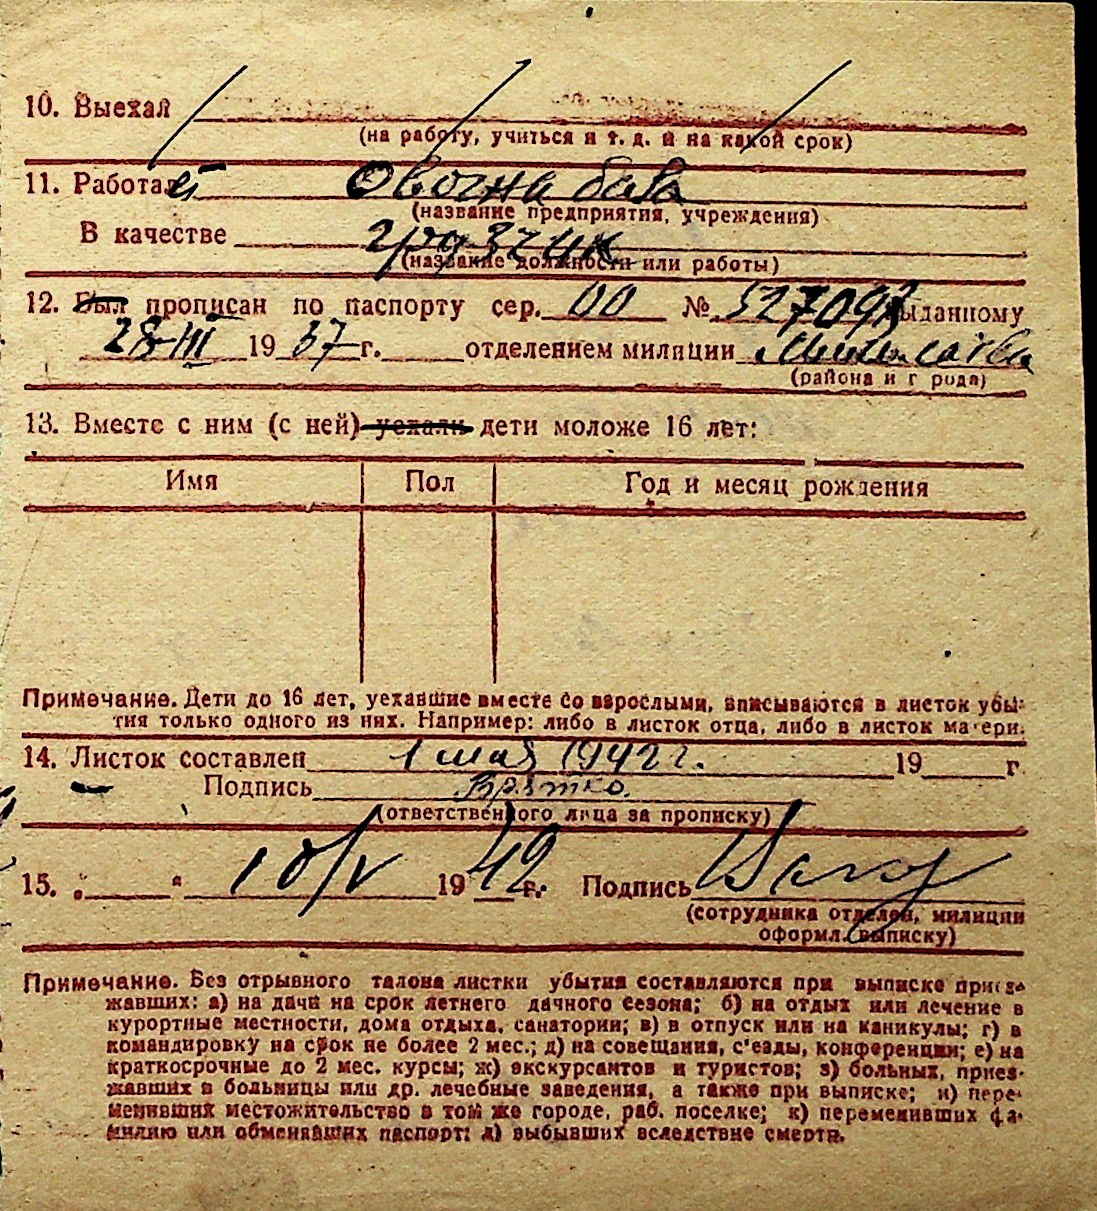 10. Выехал
(на работу, учиться и т. д. и на какой срок)
11. Работает Овочна база
(название предприятия, учреждения)
В качестве грузчик
(название должности или работы)
12. Был прописан по паспорту сер. 00 № 527097 выданному
28-III 1937 г. отделением милиции
(района и города)
13. Вместе с ним (с ней) уехали дети моложе 16 лет:
Имя Пол Год и месяц рождения
Примечание. Дети до 16 лет, уехавшие вместе со взрослыми, вписываются в листок убы-
тия только одного из них. Например: либо в листок отца, либо в листок матери.
14. Листок составлен 1 мая 1942 г. 19 г.
Подпись
(ответственного лица за прописку)
15. „ “ 10/V 1942 г. Подпись
(сотрудника отделен. милиции
оформл. выписку)
Примечание. Без отрывного талона листки убытия составляются при выписке приез-
жавших: а) на дачи на срок летнего дачного сезона; б) на отдых или лечение в
курортные местности, дома отдыха, санатории; в) в отпуск или на каникулы; г) в
командировку на срок не более 2 мес.; д) на совещания, с'езды, конференции; е) на
краткосрочные до 2 мес. курсы; ж) экскурсантов и туристов; з) больных, приез-
жавших в больницы или др. лечебные заведения, а также при выписке; и) пере-
менивших местожительство в том же городе, раб. поселке; к) переменивших фа-
милию или обменявших паспорт; л) выбывших вследствие смерти.